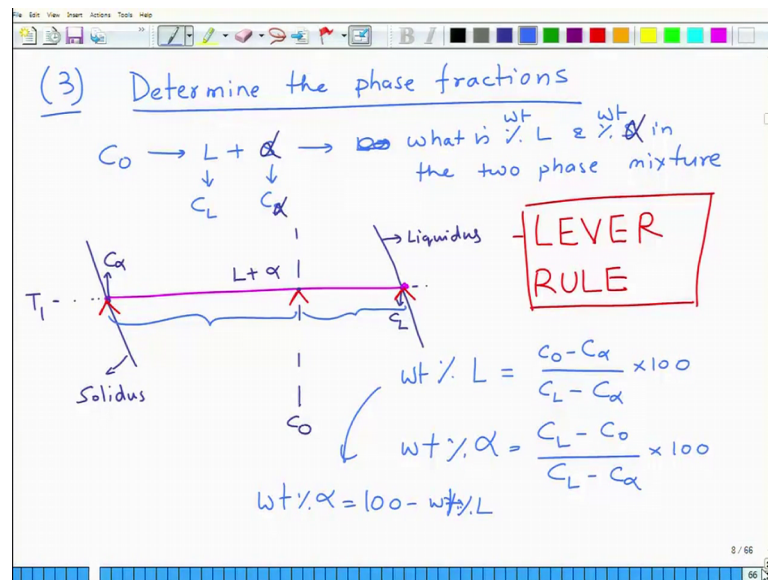 File Edit View Insert Actions Tools Help
B I
(3) Determine the phase fractions
C₀ → L + α → what is wt % L & wt % α in
the two phase mixture
↓ ↓
C_L C_α
Cα
L + α
→ Liquidus
LEVER
RULE
T₁
C_L
Solidus
C₀
wt % L = (C₀ - Cα) / (C_L - Cα) × 100
wt % α = (C_L - C₀) / (C_L - Cα) × 100
wt % α = 100 - wt % L
8 / 66
66